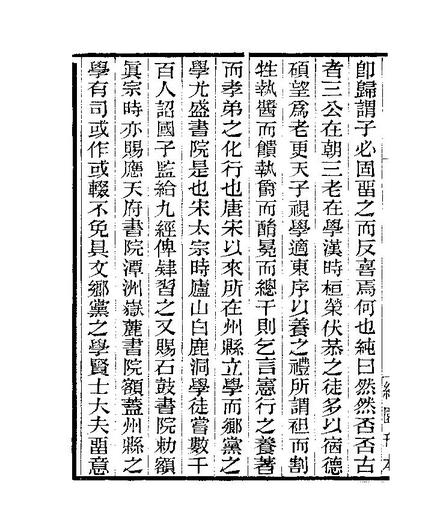 卽歸謂子必固畱之而反喜焉何也純曰然然否否古
者三公在朝三老在學漢時桓榮伏恭之徒多以宿德
碩望爲老更天子視學適東序以養之禮所謂袒而割
牲執醬而饋執爵而酳冕而總干則乞言憲行之養著
而孝弟之化行也唐宋以來所在州縣立學而鄉黨之
學尤盛書院是也宋太宗時廬山白鹿洞學徒嘗數千
百人詔國子監給九經俾肄習之又賜石鼓書院勅額
眞宗時亦賜應天府書院潭洲嶽麓書院額蓋州縣之
學有司或作或輟不免具文鄉黨之學賢士大夫畱意